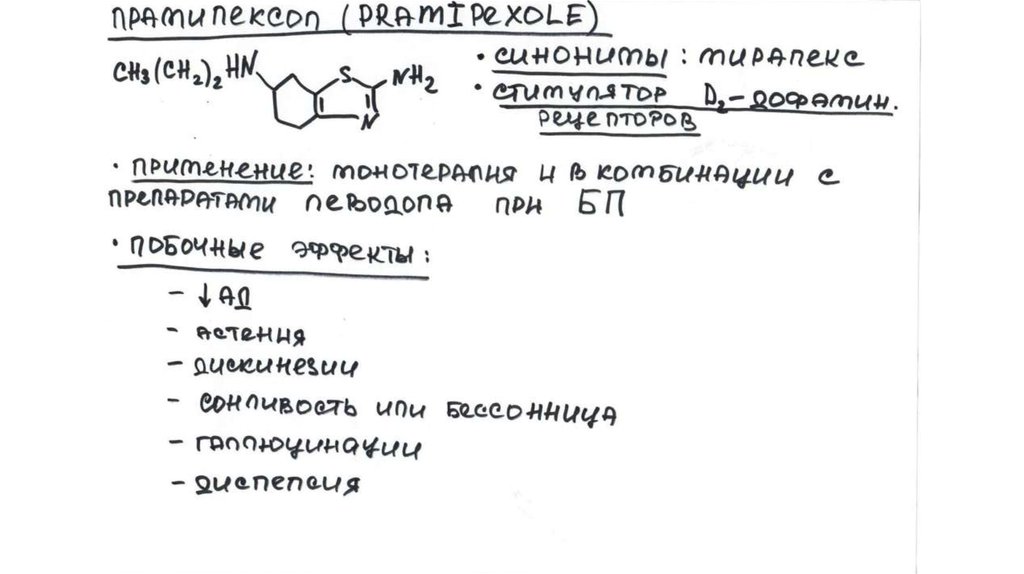 ПРАМИПЕКСОЛ (PRAMIPEXOLE)
CH3(CH2)2HN S N NH2
• СИНОНИМЫ: МИРАПЕКС
• СТИМУЛЯТОР D2-ДОФАМИН.
РЕЦЕПТОРОВ
• ПРИМЕНЕНИЕ: МОНОТЕРАПИЯ И В КОМБИНАЦИИ С
ПРЕПАРАТАМИ ЛЕВОДОПА ПРИ БП
• ПОБОЧНЫЕ ЭФФЕКТЫ:
- ↓АД
- АСТЕНИЯ
- ДИСКИНЕЗИИ
- СОНЛИВОСТЬ ИЛИ БЕССОННИЦА
- ГАЛЛЮЦИНАЦИИ
- ДИСПЕПСИЯ